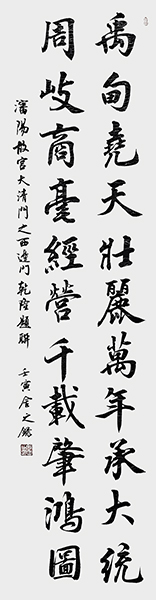 禹甸堯天壯麗萬年承大統
周岐商亳經營千載肇鴻圖
瀋陽故宮大清門之西邊門乾隆題聯
壬寅金之